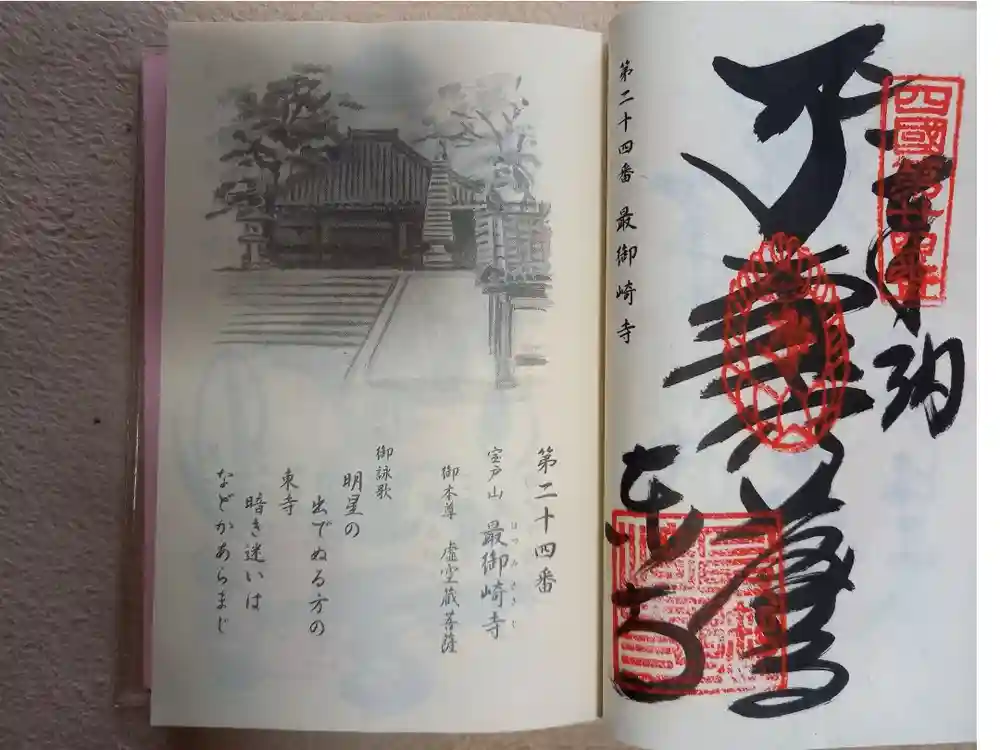 四國第廿四番
奉納
東寺
第二十四番 最御崎寺
第二十四番
室戸山 最御崎寺
ほつみさきじ
御本尊 虚空蔵菩薩
御詠歌
明星の
出でぬる方の
東寺
暗き迷いは
などかあらまじ